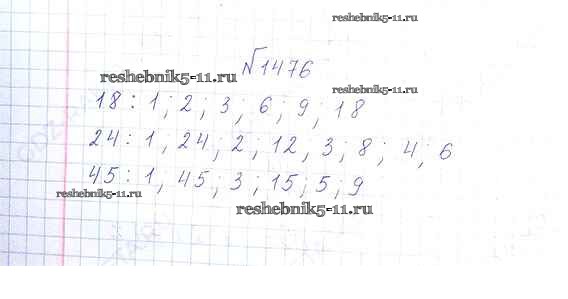 reshebnik5-11.ru
№1476
reshebnik5-11.ru
reshebnik5-11.ru
18 : 1 ; 2 ; 3 ; 6 ; 9 ; 18
24 : 1 ; 24 ; 2 ; 12 ; 3 ; 8 ; 4 ; 6
45 : 1 , 45 ; 3 ; 15 ; 5 ; 9
reshebnik5-11.ru
reshebnik5-11.ru